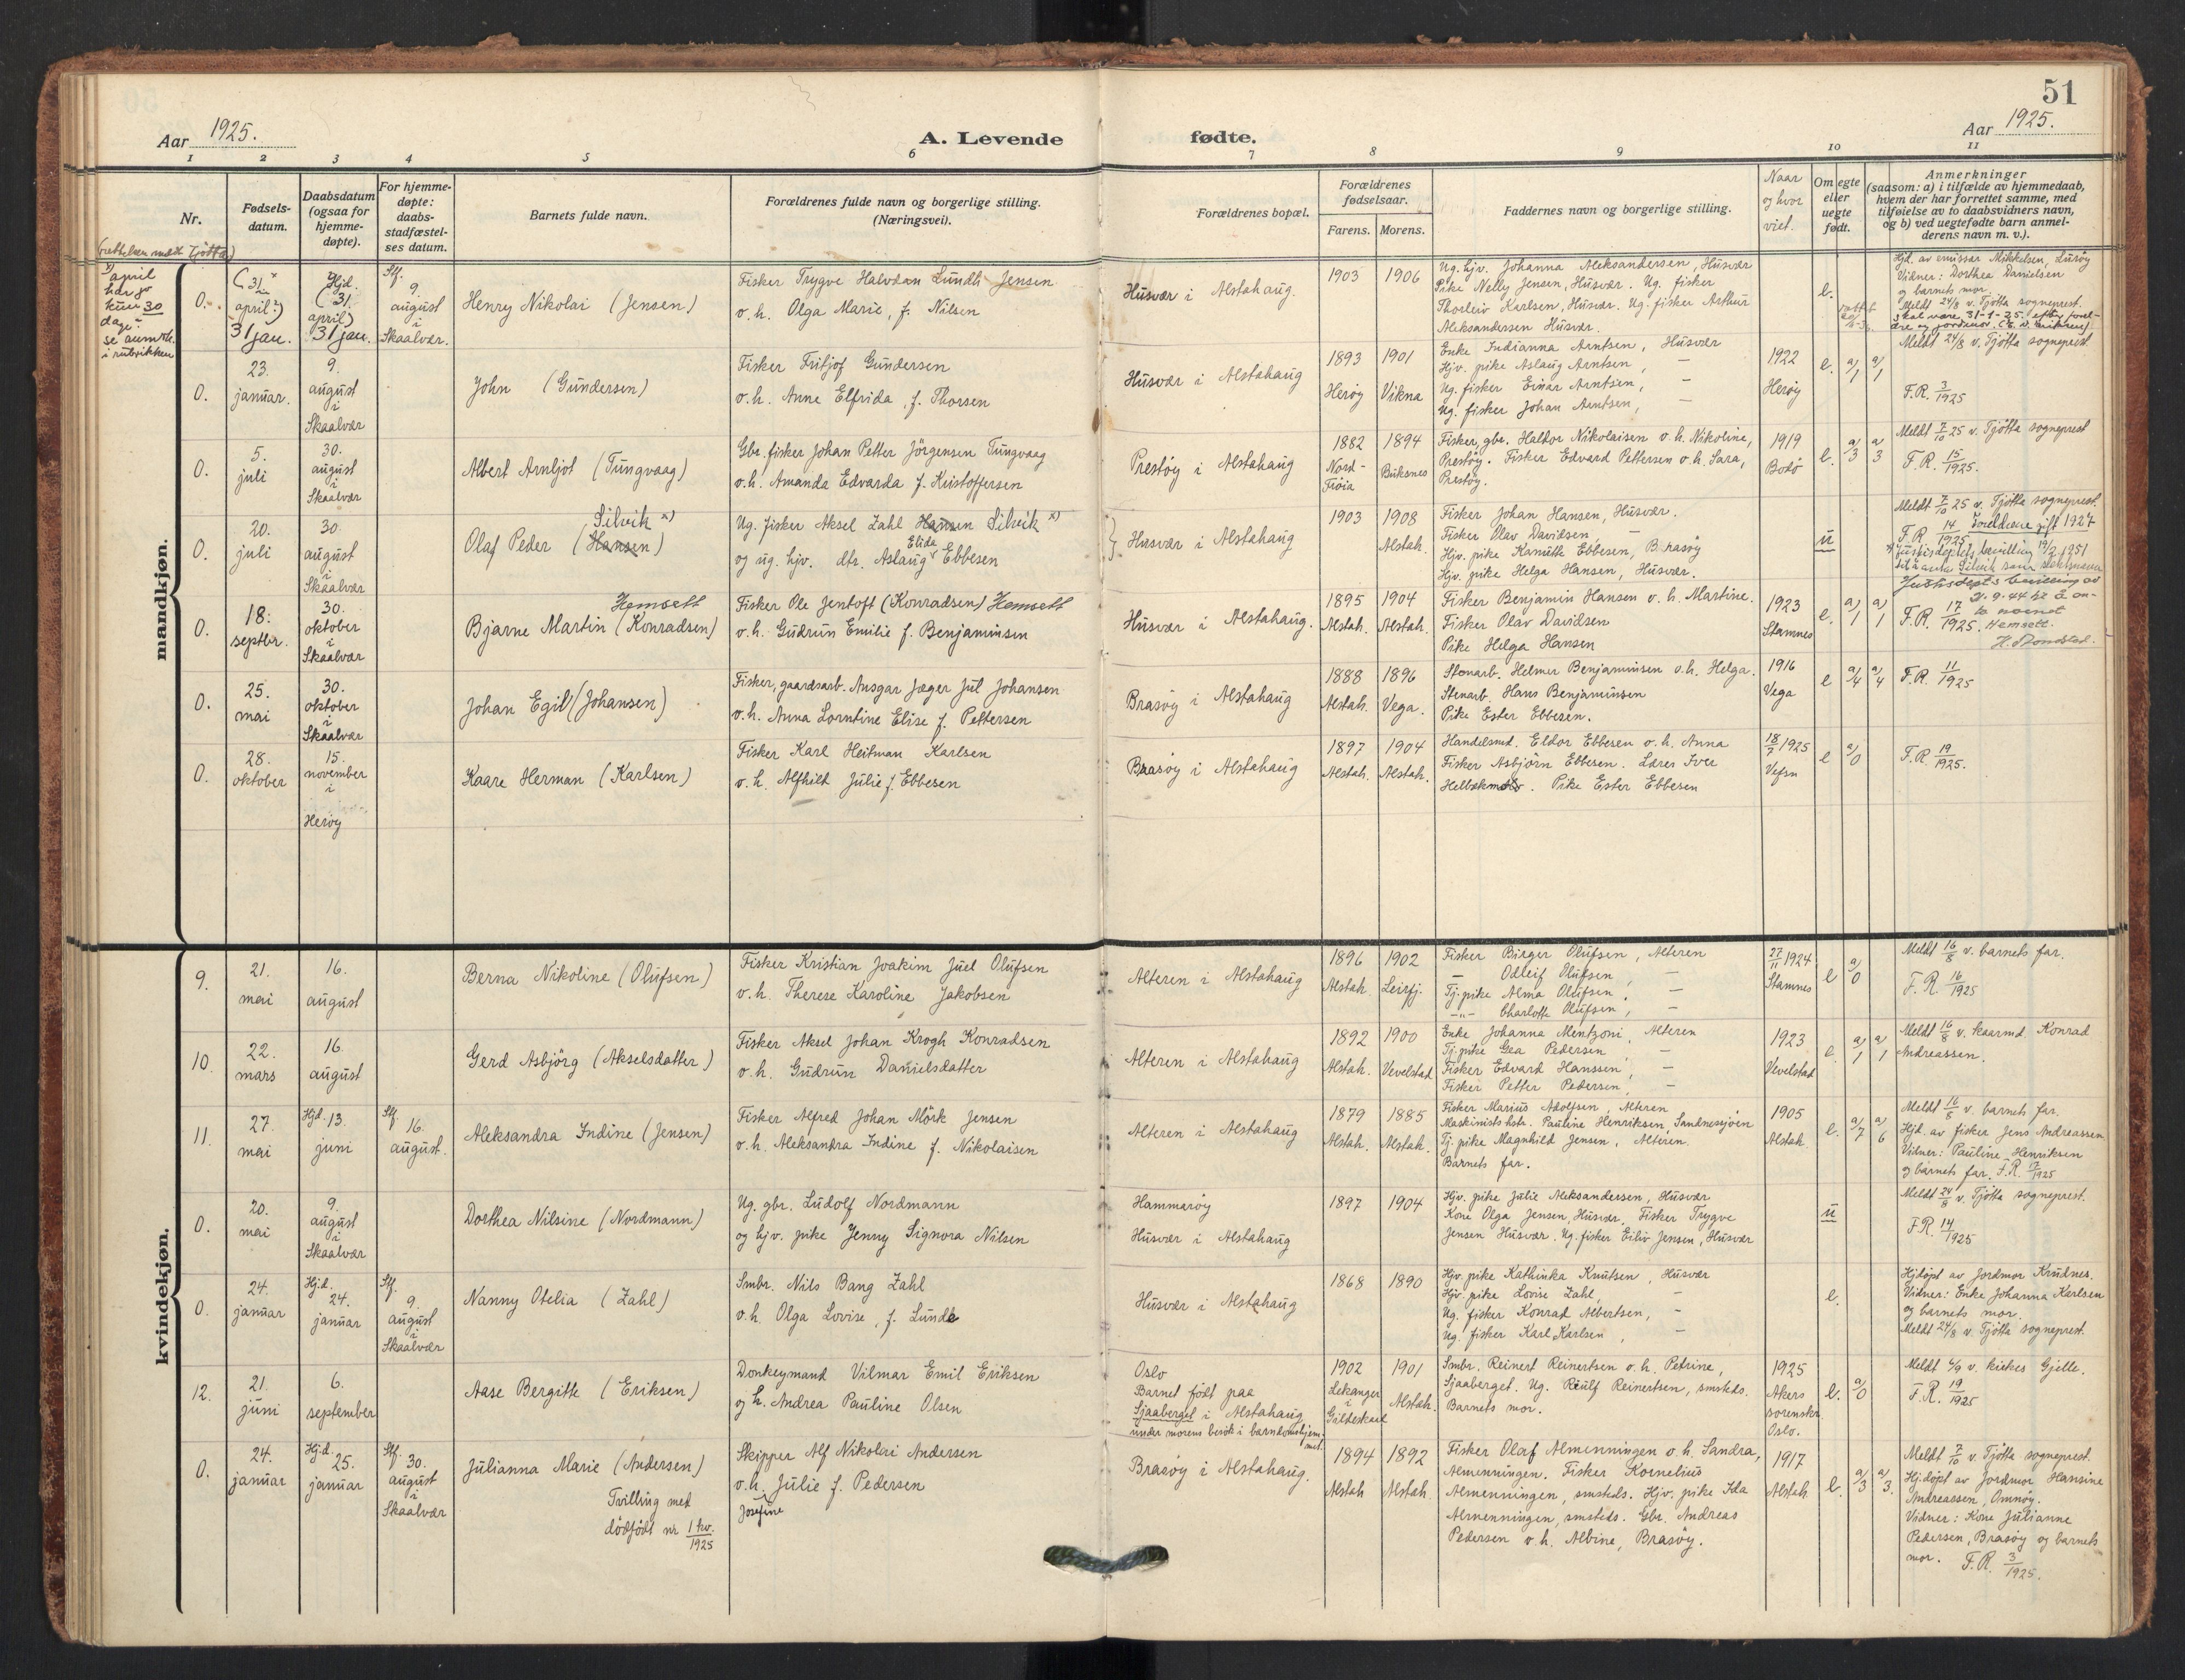 51
Aar 1925.
A. Levende fødte.
Aar 1925.
1 2 3 4 5 6 7 8 9 10 11
Nr.
Fødsels-
datum.
Daabsdatum
(ogsaa for
hjemme-
døpte).
For hjemme-
døpte:
daabs-
stadfæstel-
ses datum.
Barnets fulde navn.
Forældrenes fulde navn og borgerlige stilling.
(Næringsvei).
Forældrenes bopæl.
Forældrenes
fødselsaar.
Farens. Morens.
Faddernes navn og borgerlige stilling.
Naar
og hvor
viet.
Om egte
eller
uegte
født.
Anmerkninger
(saasom: a) i tilfælde av hjemmedaab,
hvem der har forrettet samme, med
tilføielse av to daabsvidners navn,
og b) ved uegtefødte barn anmel-
derens navn m. v.).
mandkjøn.
april
har jo
kun 30
dage
se anmrk.
i rubrikken
0.
(31 x
april?)
31 jan.
Hjd.
(31
april)
31 jan.
Stf.
9.
august
i
Skaalvær.
Henry Nikolai (Jensen)
Fisker Trygve Halvdan Lundli Jensen
o. h. Olga Marie, f. Nilsen
Husvær i Alstahaug.
1903 1906
Ug. hjv. Johanna Aleksandersen, Husvær
Pike Nelly Jensen, Husvær. Ug. fisker
Thorleiv Karlsen, Husvær. Ug. fisker Arthur
Aleksandersen Husvær.
e.
Hjd. av emissær Mikkelsen, Lurøy
Vidner: Dorthea Danielsen
og barnets mor.
Meldt 24/8 v. Tjøtta sogneprest.
skal være 31-1-25. efter forel-
dre og jordmor.
0.
23.
januar.
9.
august
i
Skaalvær
John (Gundersen)
Fisker Fritjof Gundersen
o. h. Anne Elfrida, f. Thorsen
Husvær i Alstahaug
1893 Herøy
1901 Vikna
Enke Indianna Arntsen, Husvær
Hjv. pike Aslaug Arntsen, —
Ug. fisker Einar Arntsen, —
Ug. fisker Johan Arntsen, —
1922
Herøy
e. a/1 a/1
Meldt 24/8 v. Tjøtta sogneprest
F. R. 3/1925
0.
5.
juli
30.
august
i
Skaalvær
Albert Arnljot (Tungvaag)
Gbr. fisker Johan Petter Jörgensen Tungvaag
o. h. Amanda Edvarda f. Kristoffersen
Prestøy i Alstahaug
1882 Nord-Frøia
1894 Buksnes
Fisker, gbr. Haldor Nikolaisen o. h. Nikoline,
Prestøy. Fisker Edvard Pettersen o. h. Sara,
Prestøy.
1919
Bodø
e. a/3 a/3
Meldt 7/10 25 v. Tjøtta sogneprest
F. R. 15/1925.
0.
20.
juli
30
august
i
Skaalvær
Silvik x)
Olaf Peder (Hansen)
Ug. fisker Aksel Zahl Hansen Silvik x)
og ug. hjv. dtr. Aslaug Elida Ebbesen
Husvær i Alstahaug
1903
1908 Alstah.
Fisker Johan Hansen, Husvær.
Fisker Olav Davidsen, —
Hjv. pike Kanutte Ebbesen, Brasøy
Hjv. pike Helga Hansen, Husvær.
u
Meldt 7/10 25 v. Tjøtta sogneprest.
F. R. 14/1925. Foreldrene gift 1927
x) Justisdeptets bevilling 19/2 1951
til å anta Silvik som slektsnavn
0.
18.
septbr.
30.
oktober
i
Skaalvær
Hemsett
Bjarne Martin (Konradsen)
Fisker Ole Jentoft (Konradsen) Hemsett
o. h. Gudrun Emilie f. Benjaminsen
Husvær i Alstahaug.
1895 Alstah.
1904 Alstah.
Fisker Benjamin Hansen o. h. Martine.
Fisker Olav Davidsen
Pike Helga Hansen
1923
Stamnes
e. a/1 a/1
Justisdept's bevilling av
F. R. 17/1925.
navnet
Hemsett.
0.
25.
mai
30.
oktober
i
Skaalvær
Johan Egil (Johansen)
Fisker, gaardsarb. Ansgar Jæger Jul Johansen
o. h. Anna Lorntine Elise f. Pettersen
Brasøy i Alstahaug
1888 Alstah.
1896 Vega.
Stenarb. Helmer Benjaminsen o. h. Helga.
Stenarb. Hans Benjaminsen
Pike Ester Ebbesen.
1916
Vega
e a/4 a/4
F. R. 11/1925
0.
28.
oktober
15.
november
i
Herøy
Kaare Herman (Karlsen)
Fisker Karl Heitman Karlsen
o. h. Alfhilt Julie f. Ebbesen
Brasøy i Alstahaug
1897 Alstah.
1904 Alstah.
Handelsmd. Eldor Ebbesen o. h. Anna
Fisker Asbjörn Ebbesen. Lærer Iver
Helbekmo. Pike Ester Ebbesen
18/7 1925
Vefsn
e a/0
F. R. 19/1925.
kvindekjøn.
9.
21.
mai
16.
august
Berna Nikoline (Olufsen)
Fisker Kristian Joakim Juel Olufsen
o. h. Therese Karoline Jakobsen
Alteren i Alstahaug
1896 Alstah.
1902 Leirfj.
Fisker Birger Olufsen, Alteren
— Odleif Olufsen, —
Tj. pike Alma Olufsen, —
—"— Charlotte Olufsen, —
27/11 1924
Stamnes
e a/0
Meldt 16/8 v. barnets far.
F. R. 16/1925
10.
22.
mars
16.
august
Gerd Asbjörg (Akselsdatter)
Fisker Aksel Johan Krogh Konradsen
o. h. Gudrun Danielsdatter
Alteren i Alstahaug
1892 Alstah.
1900 Vevelstad
Enke Johanna Mentzoni, Alteren
Tj. pike Gea Pedersen, —
Fisker Edvard Hanssen, —
Fisker Petter Pedersen, —
1923
Vevelstad
e. a/1 a/1
Meldt 16/8 v. kaarmd. Konrad
Andreassen.
11.
27.
mai
Hjd. 13.
juni
Stf.
16.
august.
Aleksandra Indine (Jensen)
Fisker Alfred Johan Mörk Jensen
o. h. Aleksandra Indine f. Nikolaisen
Alteren i Alstahaug
1879 Alstah.
1885 Alstah.
Fisker Marius Adolfsen, Alteren
Maskinists hstr. Pauline Henriksen, Sandnessjøen
Tj. pike Magnhild Jensen, Alteren.
Barnets far.
1905
Alstah.
e. a/7 a/6
Meldt 16/8 v. barnets far.
Hjd. av fisker Jens Andreassen.
Vidner: Pauline Henriksen
og barnets far. F. R. 17/1925
0.
20.
mai
9.
august
i
Skaalvær
Dorthea Nilsine (Nordmann)
Ug. gbr. Ludolf Nordmann
og hjv. pike Jenny Signora Nilsen
Hammarøy
Husvær i Alstahaug
1897 1904
Hjv. pike Julie Aleksandersen, Husvær
Kone Olga Jensen, Husvær, Fisker Trygve
Jensen Husvær. Ug. fisker Eiliv Jensen, Husvær
u
Meldt 24/8 v. Tjøtta sogneprest.
F. R. 14/1925
0.
24.
januar
Hjd.
24.
januar
Stf.
9.
august
i
Skaalvær
Nanny Otelia (Zahl)
Smbr. Nils Bang Zahl
o. h. Olga Lovise, f. Lunde
Husvær i Alstahaug
1868 1890
Hjv. pike Kathinka Knutsen, Husvær
Hjv. pike Lovise Zahl, —
Ug. fisker Konrad Albertsen, —
Ug. fisker Karl Karlsen, —
e.
Hjdøpt av Jordmor Knudnes.
Vidner: Enke Johanna Karlsen
og barnets mor.
Meldt 24/8 v. Tjøtta sogneprest.
12.
21.
juni
6.
september
Aase Bergitte (Eriksen)
Donkeymand Vilmar Emil Eriksen
og h. Andrea Pauline Olsen
Oslo
Barnet født paa
Sjaaberget i Alstahaug
under morens besök i barndomshjem-
met.
1902 Lekanger i Gildeskaal
1901 Alstah.
Smbr. Reinert Reinertsen o. h. Petrine,
Sjaaberget. Ug. Reulf Reinertsen, smsteds.
Barnets mor.
1925
Akers
sorenskr.
Oslo.
e. a/0
Meldt 6/9 v. kirkes Gjelle.
F. R. 19/1925
0.
24.
januar
Hjd.
25.
januar
Stf. 30.
august
i
Skaalvær
Julianna Marie (Andersen)
Tvilling med
dödfödt nr 1 kv./1925
Skipper Alf Nikolai Andersen
o. h. Julie f. Pedersen
Josefine
Brasøy i Alstahaug.
1894 Alstah
1892 Alstah.
Fisker Olaf Almenningen o. h. Sandra,
Almenningen. Fisker Kornelius
Almenningen, smsteds. Hjv. pike Ida
Almenningen, smsteds. Gbr. Andreas
Pedersen o. h. Albine, Brasøy.
1917
Alstah.
e. a/3 a/3.
Meldt 7/10 v. Tjøtta sogneprest.
Hjdøpt av Jordmor Hansine
Andreassen, Omnøy.
Vidner: Kone Julianne
Pedersen, Brasøy og barnets
mor. F. R. 3/1925.